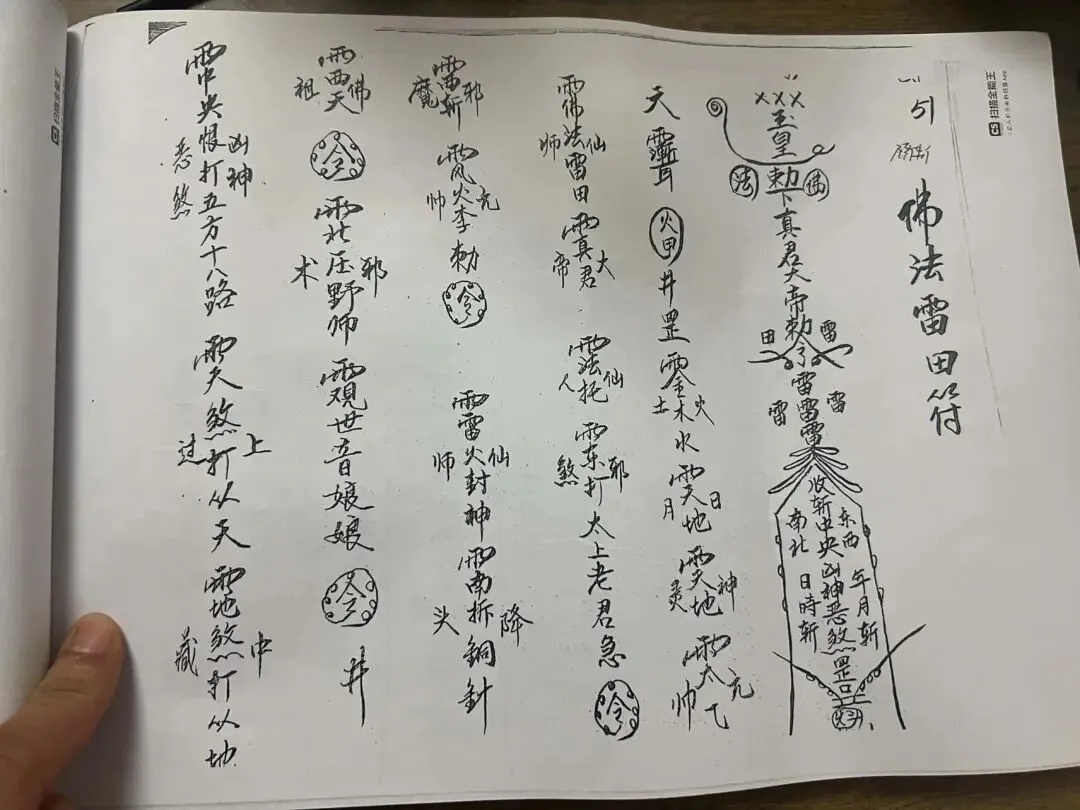 51
佛法雷田符
CS 扫描全能王
×××
玉皇
法 勅 佛
下真君大帝勅令
田 雷
雷雷雷
雷 雷
收斩中央凶神恶煞罡
东西
南北
年月斩
日時斩
天
火甲
井罡
金木水
火
土
天地
日
月
天地
神
灵
太乙
元
帅
佛法雷田
仙
师
真君
大
帝
法托
仙
人
东打
邪
煞
太上老君急
令
雷斩
邪
魔
风火李勅
元
帅
令
雷火封神
仙
师
南拆銅針
降
头
西天
佛
祖
令
北压野师
邪
术
观世音娘娘
令
井
中央恨打五方十八路
凶神
恶煞
天煞打从天
上
过
地煞打从地
中
藏
CS 扫描全能王